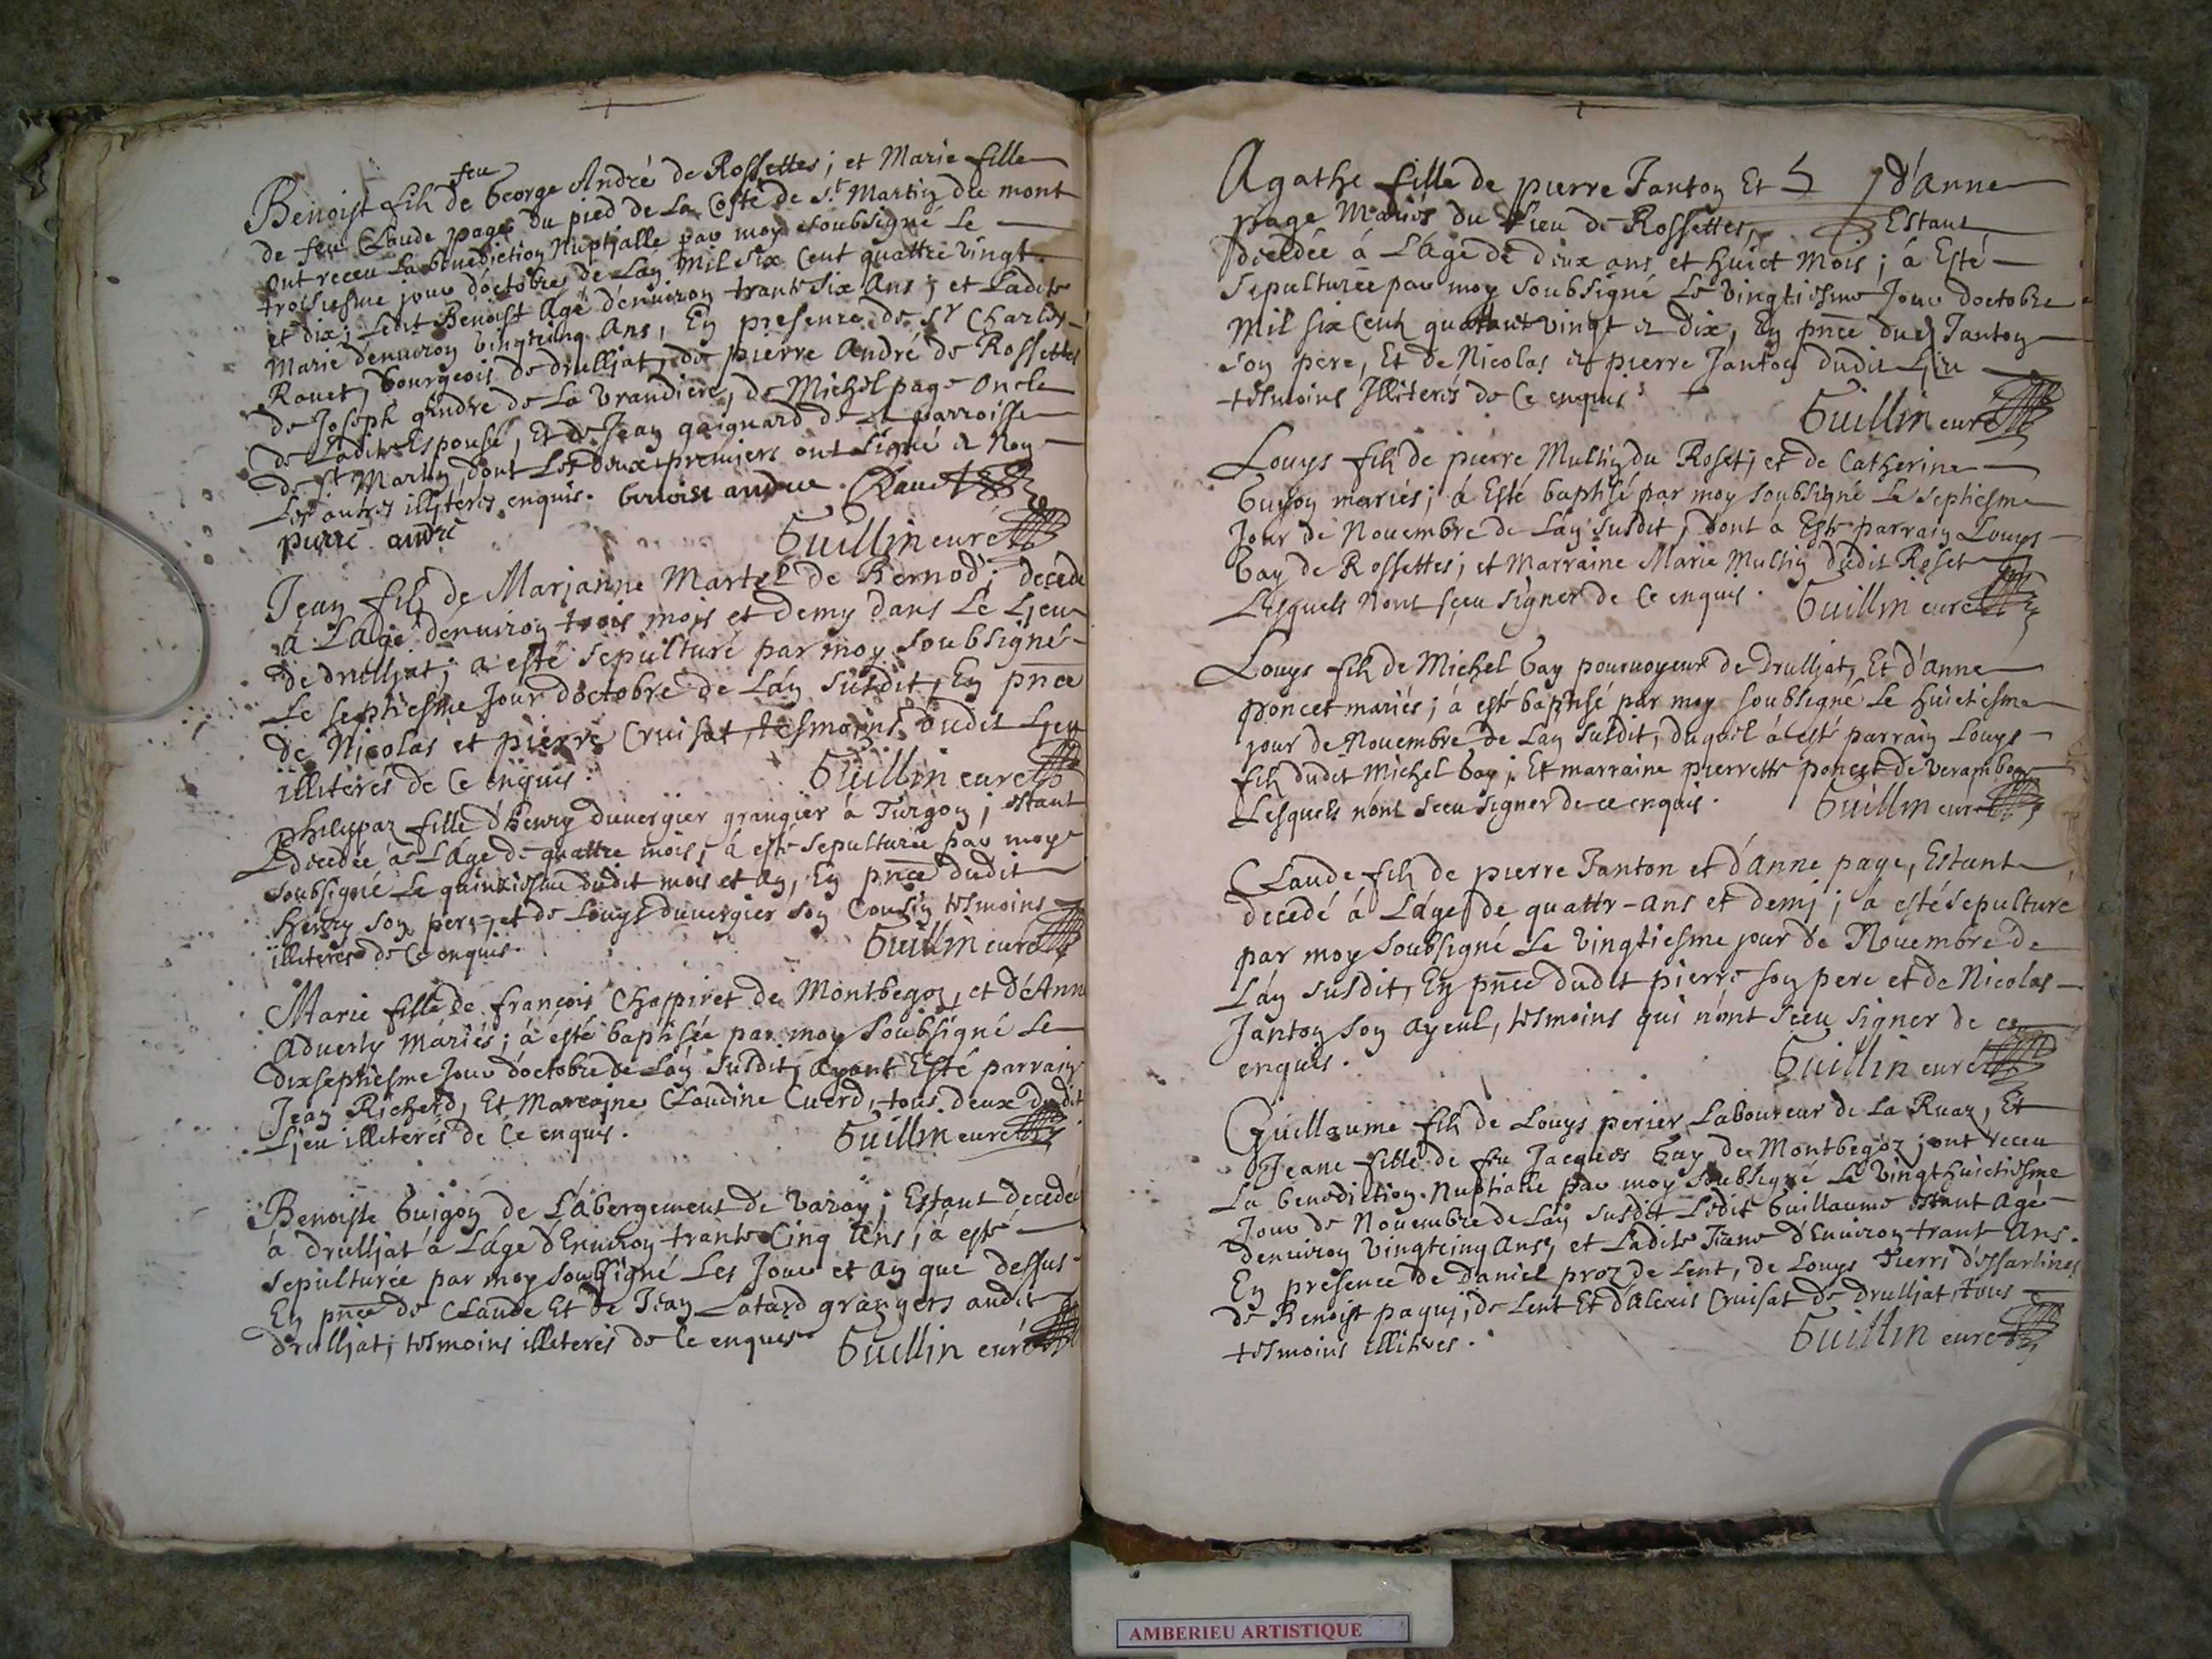 Benoist fils de feu George André de Rossettes; et Marie fille
de feu Claude page du pied de La Coste de St Martin du mont
ont receu La benediction Nuptjalle par moy soubsigné Le
troisiesme jour d'octobre de L'an Mil six Cent quattre vingt
et dix; Ledit Benoist Agé d'enuiron trante six Ans; et Ladite
Marie d'enuiron vingtcinq Ans, En presence de Sr Charles
Rouet, bourgeois de drulljat, de pierre André de Rossettes
de Joseph gendre de La vrandiere, de Michel page oncle
de Ladite Espouse, Et de Jean gaignard de La parroisse
de St Martin, dont Les deux premiers ont signé & Non
Les autres illiterés enquis. benoist andre Rouet
pierre andre Guillin curé
Jean fils de Marjanne Martel de Bernod; decedé
à L'age d'enuiron trois mois et demy dans Le Ljeu
de drulljat; a esté sepulturé par moy soubsigné
Le septiesme Jour d'octobre de L'an susdit, En pnce
de Nicolas et pierre Cruisat tesmoins dudit Ljeu
illiterés de Ce enquis. Guillin curé
philippaz fille d'henry duuergier grangier à Turgon; estant
decedée à L'age de quattre mois; à esté sepulturée par moy
soubsigné Le quinziesme dudit mois et an, En pnce dudit
henry son pere, et de Louys duuergier son Cousin tesmoins
illiterés de Ce enquis. Guillin curé
Marie fille de françois Chappiret de Montbegoz, et d'Anne
Aduerly Mariés; à esté baptisée par moy Soubsigné Le
dixseptiesme Jour d'octobre de L'an susdit, ayant Esté parrain
Jean Richerd, Et Marraine Claudine Cuerd, tous deux dudit
Ljeu illiterés de Ce enquis. Guillin curé
Benoiste Guigon de L'abergement de varay; Estant decedée
à drulljat à L'age d'Enuiron trante Cinq Ans; à esté
sepulturée par moy soubsigné Les Jour et an que dessus
En pnce de Claude Et de Jean Latard grangers audit
drulljat; tesmoins illiterés de Ce enquis. Guillin curé
Agathe fille de pierre Janton Et d'Anne
page Mariés du Lieu de Rossettes, Estant
decedée à L'Age de deux ans et huict Mois; à Esté
sepulturée par moy soubsigné Le vingtiesme Jour d'octobre
Mil six Cent quattre vingt & dix, En pnce dud Janton
son pere, Et de Nicolas & pierre Janton dudit Ljeu
tesmoins Illiterés de Ce enquis Guillin curé
Louys fils de pierre Multin du Roset; et de Catherine
Guyon mariés; à Esté baptisé par moy soubsigné Le septiesme
Jour de Nouembre de L'an susdit, dont à Esté parrain Louys
Gay de Rossettes; et Marraine Marie Multin dudit Roset
Lesquels N'ont sceu signer de Ce enquis. Guillin curé
Louys fils de Michel Gay pouruoyeur de Drulljat, Et d'Anne
poncet mariés; à esté baptisé par moy soubsigné Le huictiesme
jour de Nouembre de L'an susdit, duquel à esté parrain Louys
fils dudit Michel Gay; Et marraine pierrette poncet de
Lesquels n'ont sceu signer de ce enquis. Guillin curé
Claude fils de pierre Janton et d'Anne page, Estant
decedé à L'age de quattr-ans et demj; à esté sepulturé
par moy soubsigné Le vingtiesme jour de Nouembre de
L'an susdit, En pnce dudit pierre son pere et de Nicolas
Janton son ayeul, tesmoins qui n'ont sceu signer de ce
enquis. Guillin curé
Guillaume fils de Louys perier Laboureur de La Ruaz, Et
Jeane fille de feu Jacques Gay de Montbegoz; ont receu
La benediction Nuptialle par moy soubsigné Le vingt huictiesme
Jour de Nouembre de L'an susdit Ledit Guillaume estant Agé
d'enuiron vingtcinq Ans, et Ladite Jeane d'Enuiron trant Ans.
En presence de Daniel proz de Lent, de Louys Pierre
de Benoist paquj, de Lent Et d'Alexis Cruisat de drulljat, tous
tesmoins illiterés. Guillin curé
AMBERIEU ARTISTIQUE